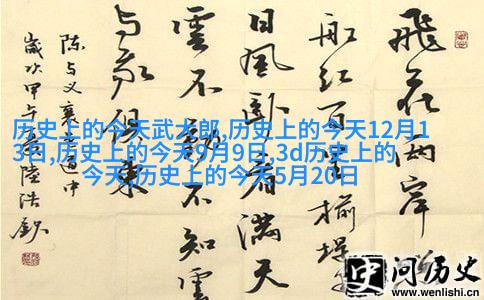 历史上的今天武大郎,历史上的今天12月1
3日,历史上的今天9月9日,3d历史上的
今天,历史上的今天5月20日
飛花兩岸
船红百里榆堤
日風卧看滿天
雲不動不知雲
与我俱東
陈与义襄邑道中
歲次甲午年陸浩
史问历史
www.wenlishi.cn